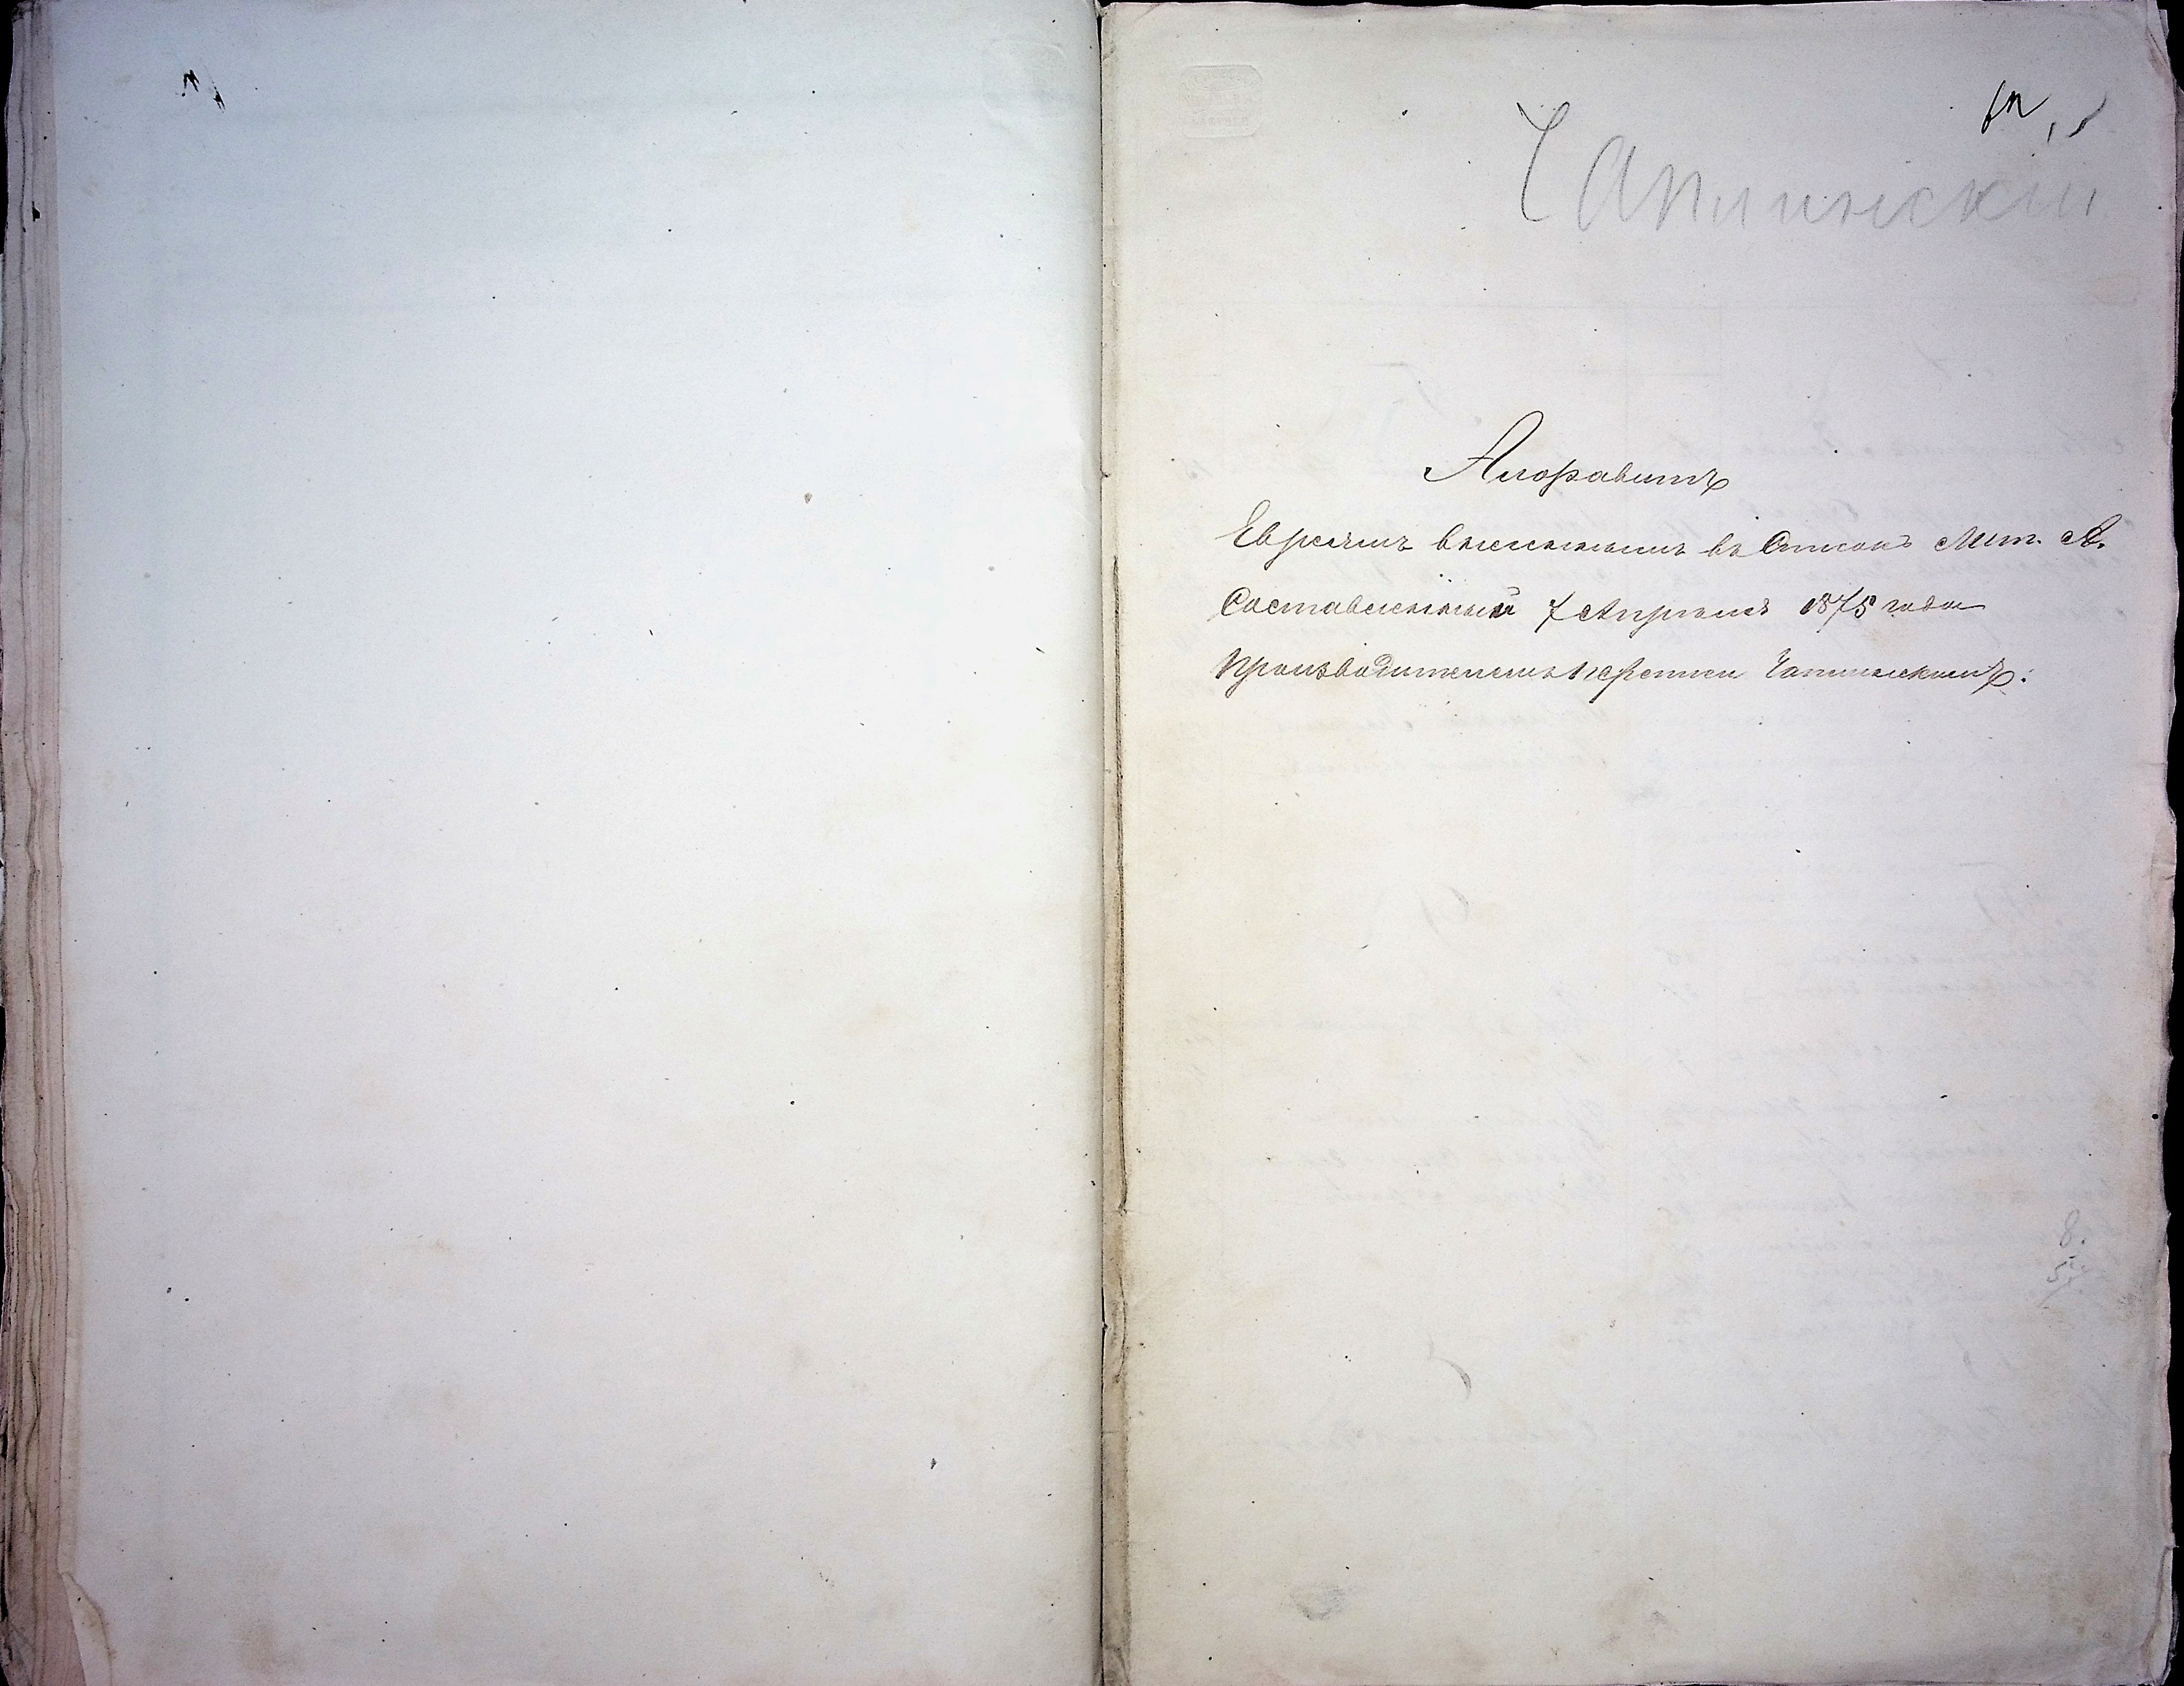 Чапинскій
Алфавитъ
Евреямъ внесеннымъ въ Списокъ Лит. А.
Составленный 7 Апрѣля 1875 года
Производителемъ переписи Чапинскимъ.
8.
5